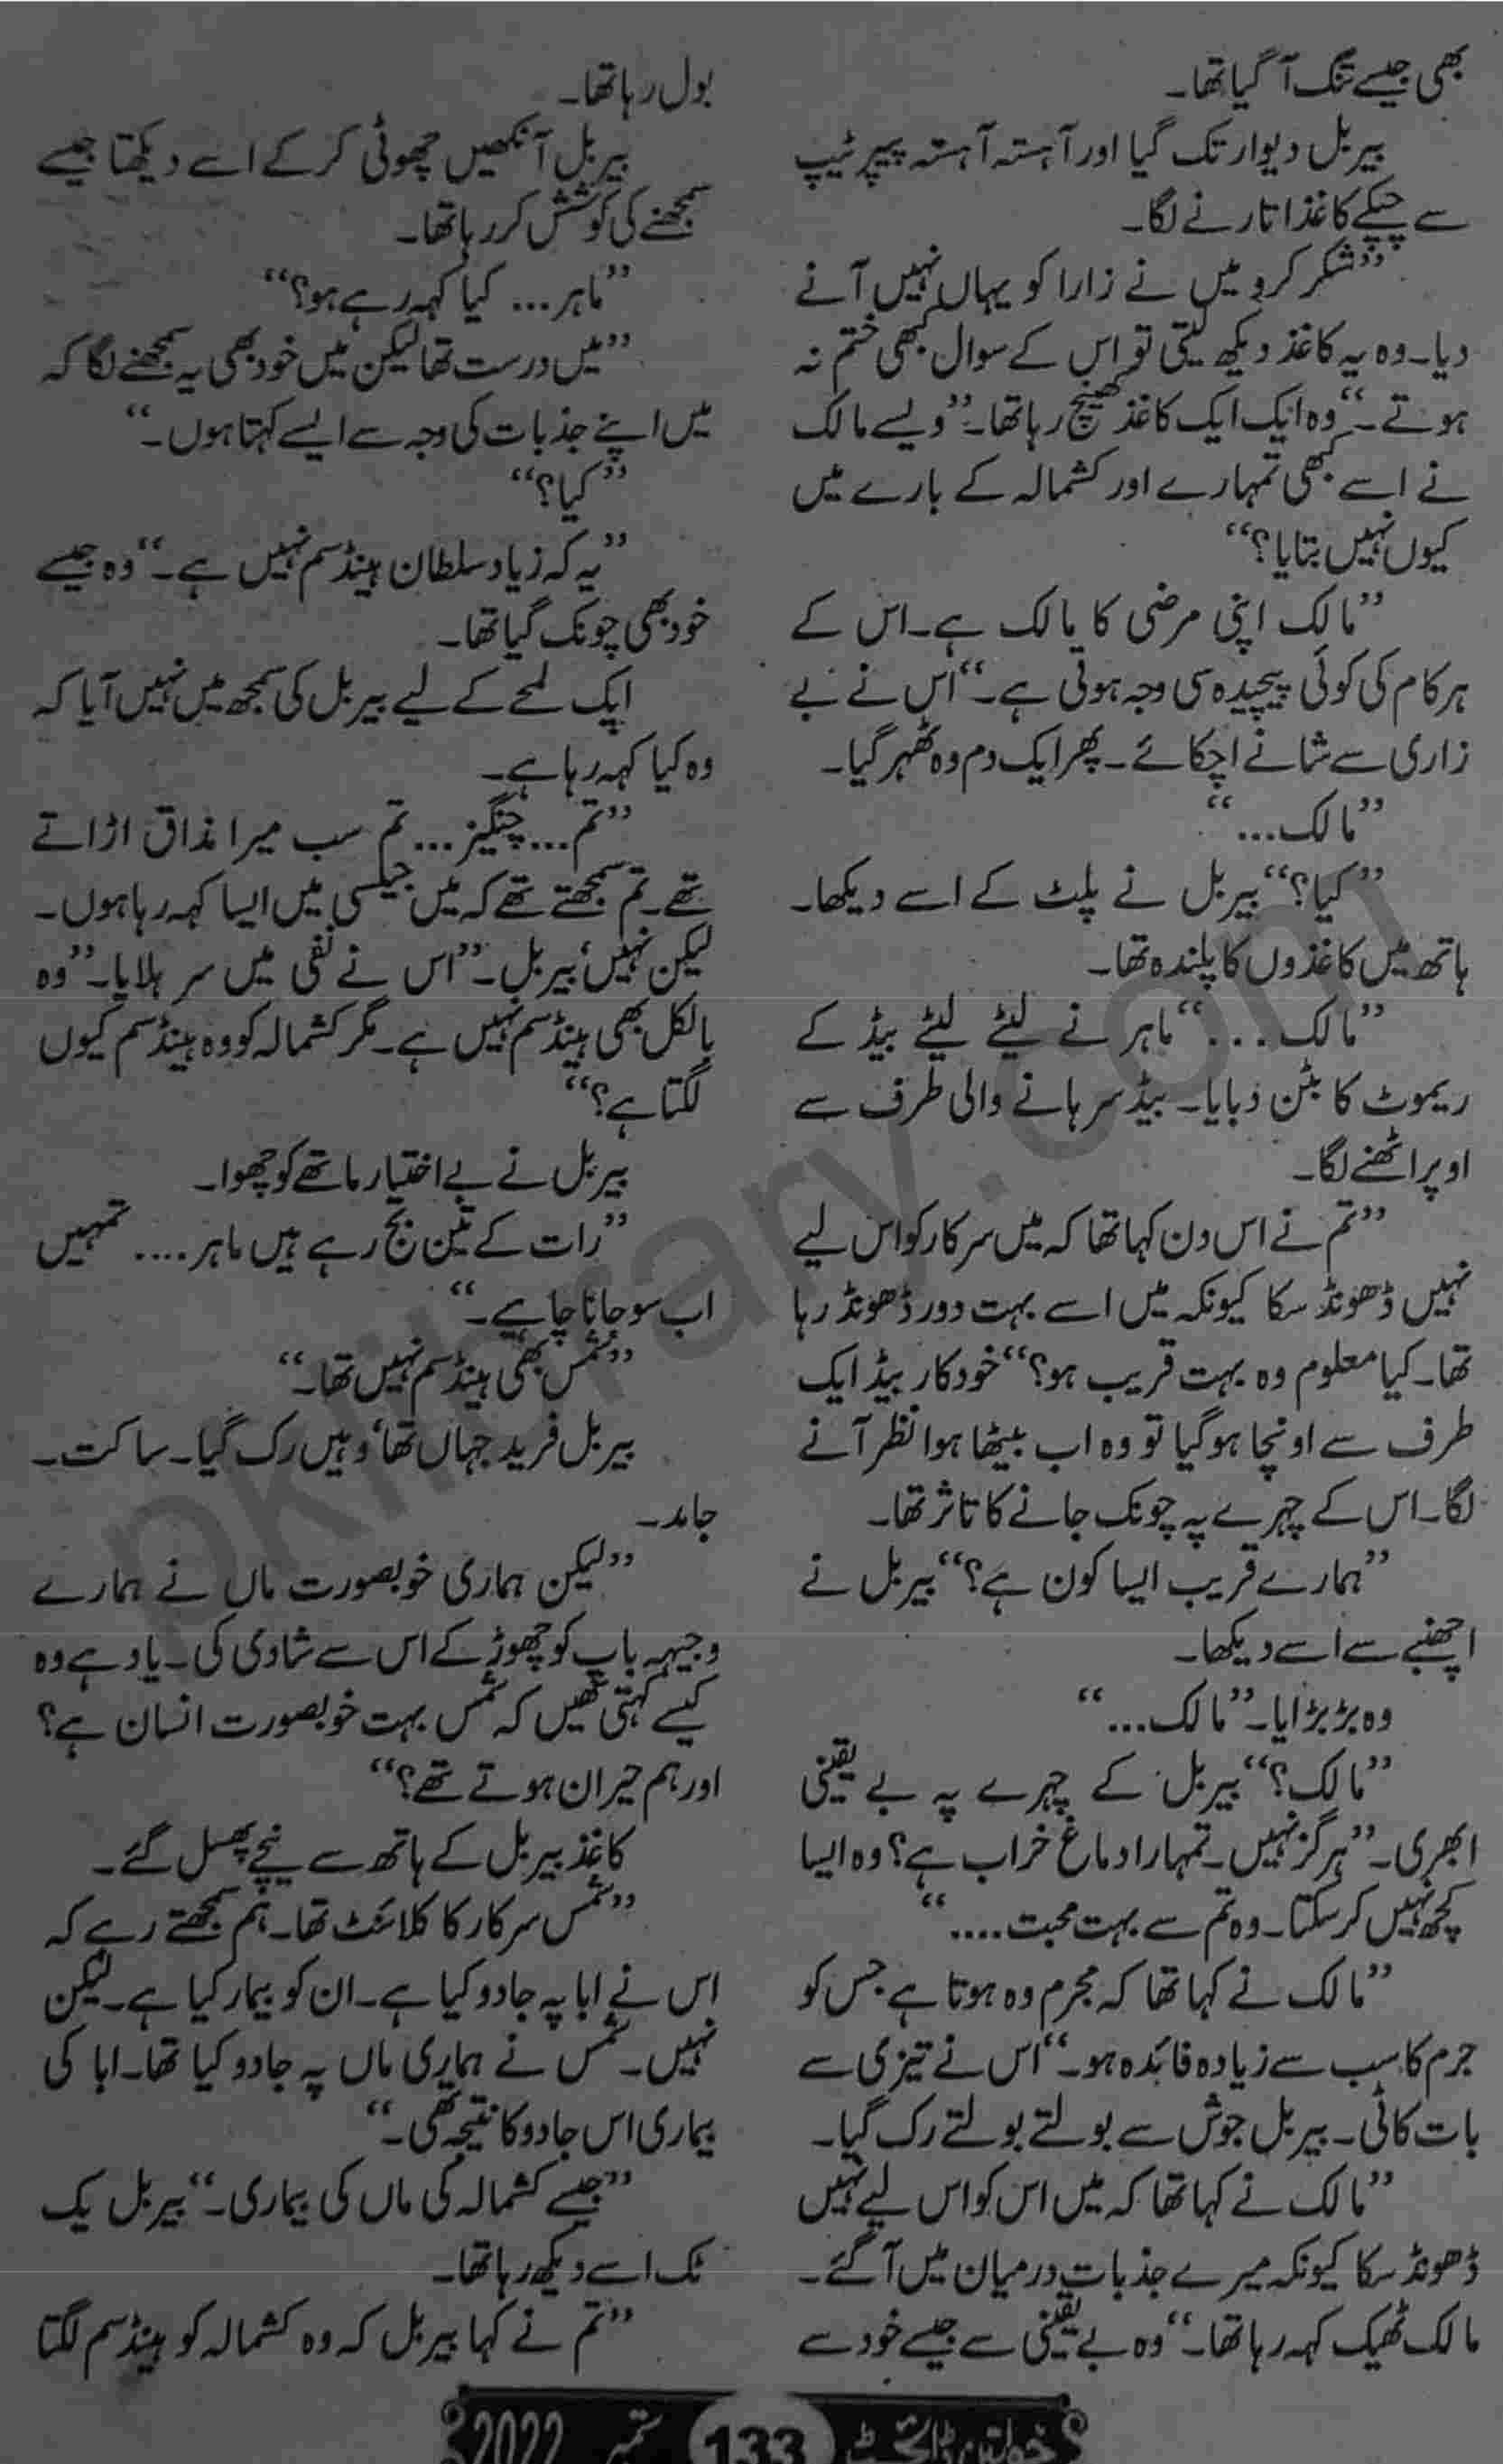 بھی جیسے تنگ آ گیا تھا۔
بیربل دیوار تک گیا اور آہستہ آہستہ پیپر ٹیپ
سے چپکے کاغذ اتارنے لگا۔
”شکر کرو میں نے زارا کو یہاں نہیں آنے
دیا۔ وہ یہ کاغذ دیکھ لیتی تو اس کے سوال کبھی ختم نہ
ہوتے۔“ وہ ایک ایک کاغذ کھینچ رہا تھا۔ ”ویسے مالک
نے اسے کبھی تمہارے اور کشمالہ کے بارے میں
کیوں نہیں بتایا؟“
”مالک اپنی مرضی کا مالک ہے۔ اس کے
ہر کام کی کوئی پیچیدہ سی وجہ ہوتی ہے۔“ اس نے بے
زاری سے شانے اچکائے۔ پھر ایک دم وہ ٹھہر گیا۔
”مالک...“
”کیا؟“ بیربل نے پلٹ کے اسے دیکھا۔
ہاتھ میں کاغذوں کا پلندہ تھا۔
”مالک...“ ماہر نے لیٹے لیٹے بیڈ کے
ریموٹ کا بٹن دبایا۔ بیڈ سرہانے والی طرف سے
اوپر اٹھنے لگا۔
”تم نے اس دن کہا تھا کہ میں سرکار کو اس لیے
نہیں ڈھونڈ سکا کیونکہ میں اسے بہت دور ڈھونڈ رہا
تھا۔ کیا معلوم وہ بہت قریب ہو؟“ خودکار بیڈ ایک
طرف سے اونچا ہو گیا تو وہ اب بیٹھا ہوا نظر آنے
لگا۔ اس کے چہرے پہ چونک جانے کا تاثر تھا۔
”ہمارے قریب ایسا کون ہے؟“ بیربل نے
اچنبھے سے اسے دیکھا۔
وہ بڑبڑایا۔ ”مالک...“
”مالک؟“ بیربل کے چہرے پہ بے یقینی
ابھری۔ ”ہرگز نہیں۔ تمہارا دماغ خراب ہے؟ وہ ایسا
کچھ نہیں کر سکتا۔ وہ تم سے بہت محبت....“
”مالک نے کہا تھا کہ مجرم وہ ہوتا ہے جس کو
جرم کا سب سے زیادہ فائدہ ہو۔“ اس نے تیزی سے
بات کاٹی۔ بیربل جوش سے بولتے بولتے رک گیا۔
”مالک نے کہا تھا کہ میں اس کو اس لیے نہیں
ڈھونڈ سکا کیونکہ میرے جذبات درمیان میں آ گئے۔
مالک ٹھیک کہہ رہا تھا۔“ وہ بے یقینی سے جیسے خود سے
بول رہا تھا۔
بیربل آنکھیں چھوٹی کر کے اسے دیکھتا جیسے
سمجھنے کی کوشش کر رہا تھا۔
”ماہر... کیا کہہ رہے ہو؟“
”میں درست تھا لیکن میں خود بھی یہ سمجھنے لگا کہ
میں اپنے جذبات کی وجہ سے ایسے کہتا ہوں۔“
”کیا؟“
”یہ کہ زیاد سلطان ہینڈسم نہیں ہے۔“ وہ جیسے
خود بھی چونک گیا تھا۔
ایک لمحے کے لیے بیربل کی سمجھ میں نہیں آیا کہ
وہ کیا کہہ رہا ہے۔
”تم... چنگیز... تم سب میرا مذاق اڑاتے
تھے۔ تم سمجھتے تھے کہ میں جیلسی میں ایسا کہہ رہا ہوں۔
لیکن نہیں، بیربل۔“ اس نے نفی میں سر ہلایا۔ ”وہ
بالکل بھی ہینڈسم نہیں ہے۔ مگر کشمالہ کو وہ ہینڈسم کیوں
لگتا ہے؟“
بیربل نے بے اختیار ماتھے کو چھوا۔
”رات کے تین بج رہے ہیں ماہر.... تمہیں
اب سو جانا چاہیے۔“
”شمس بھی ہینڈسم نہیں تھا۔“
بیربل فرید جہاں تھا، وہیں رک گیا۔ ساکت۔
جامد۔
”لیکن ہماری خوبصورت ماں نے ہمارے
وجیہہ باپ کو چھوڑ کے اس سے شادی کی۔ یاد ہے وہ
کیسے کہتی تھیں کہ شمس بہت خوبصورت انسان ہے؟
اور ہم حیران ہوتے تھے؟“
کاغذ بیربل کے ہاتھ سے نیچے پھسل گئے۔
”شمس سرکار کا کلائنٹ تھا۔ ہم سمجھتے رہے کہ
اس نے ابا پہ جادو کیا ہے۔ ان کو بیمار کیا ہے۔ لیکن
نہیں۔ شمس نے ہماری ماں پہ جادو کیا تھا۔ ابا کی
بیماری اس جادو کا نتیجہ تھی۔“
”جیسے کشمالہ کی ماں کی بیماری۔“ بیربل یک
ٹک اسے دیکھ رہا تھا۔
”تم نے کہا بیربل کہ وہ کشمالہ کو ہینڈسم لگتا
خواتین ڈائجسٹ 133 ستمبر 2022
pklibrary.com